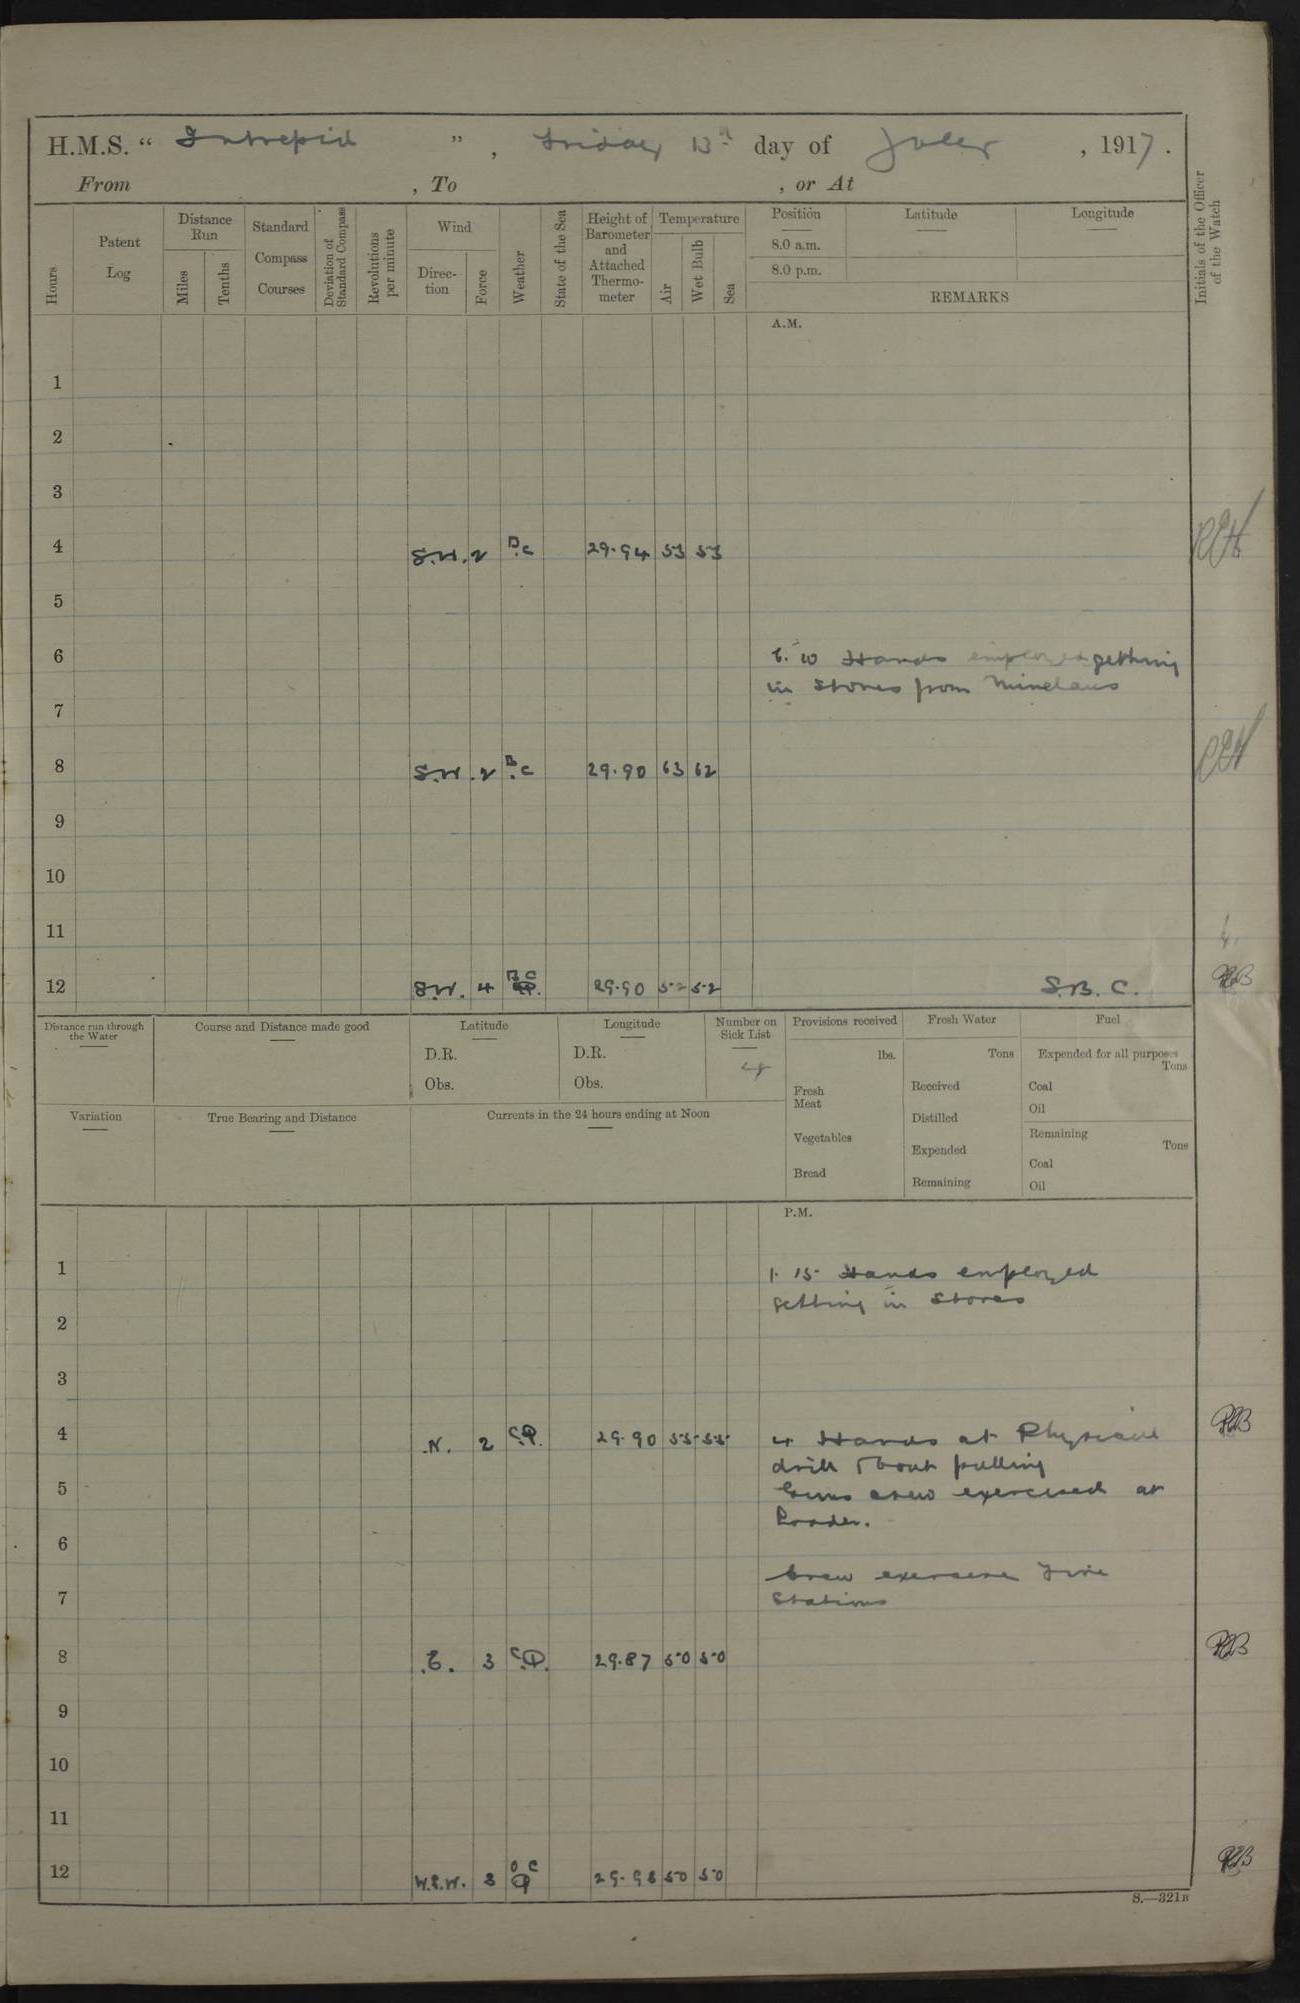 H.M.S. “ Intrepid ” , Friday 13th day of July , 1917 .
From , To , or At
Hours
Patent Log
Distance Run
Miles
Tenths
Standard Compass Courses
Deviation of Standard Compass
Revolutions per minute
Wind
Direc-tion
Force
Weather
State of the Sea
Height of Barometer and Attached Thermo-meter
Temperature
Air
Wet Bulb
Sea
Position Latitude Longitude
8.0 a.m.
8.0 p.m.
REMARKS
Initials of the Officer of the Watch
A.M.
1
2
3
4 S.W. 2 B.C 29.94 53 53
5
6 6.10 Hands employed getting
in stores from
7
8 S.W. 2 B.C 29.90 63 62
9
10
11
12 S.W. 4 B C 29.90 52 52 S.B.C.
Distance run through the Water
Course and Distance made good
Latitude
D.R.
Obs.
Longitude
D.R.
Obs.
Number on Sick List
4
Provisions received
lbs.
Fresh Meat
Vegetables
Bread
Fresh Water
Tons
Received
Distilled
Expended
Remaining
Fuel
Expended for all purposes
Tons
Coal
Oil
Remaining
Tons
Coal
Oil
Variation
True Bearing and Distance
Currents in the 24 hours ending at Noon
P.M.
1 1.15 Hands employed
getting in stores
2
3
4 N. 2 C.P. 29.90 55 55 4 Hands at Physical
drill boat pulling
5 Guns crew exercised at
Loader.
6
Crew exercise Fire
7 Stations
8 E. 3 C.P. 29.87 50 50
9
10
11
12 W.S.W. 3 O C P 29.98 50 50
S.—321B